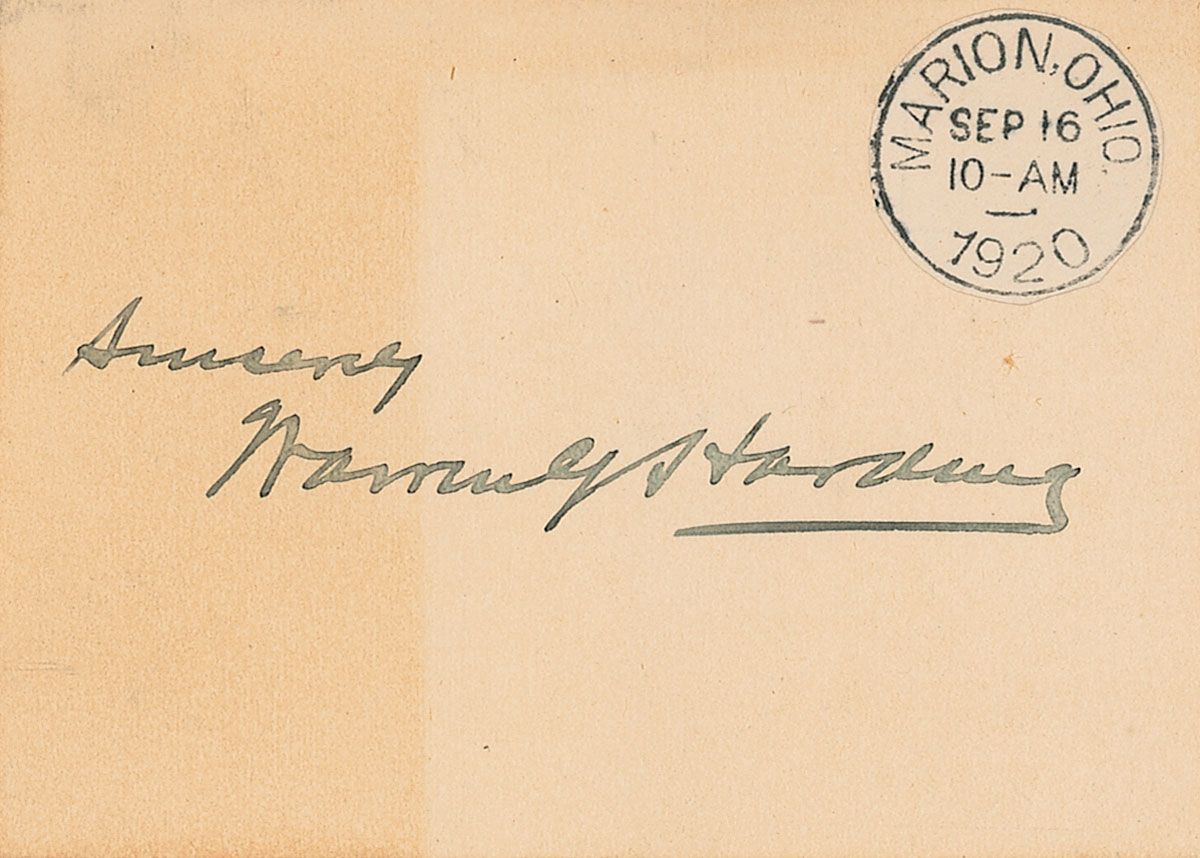 MARION, OHIO.
SEP 16
10-AM
1920
Sincerely
Warren G Harding